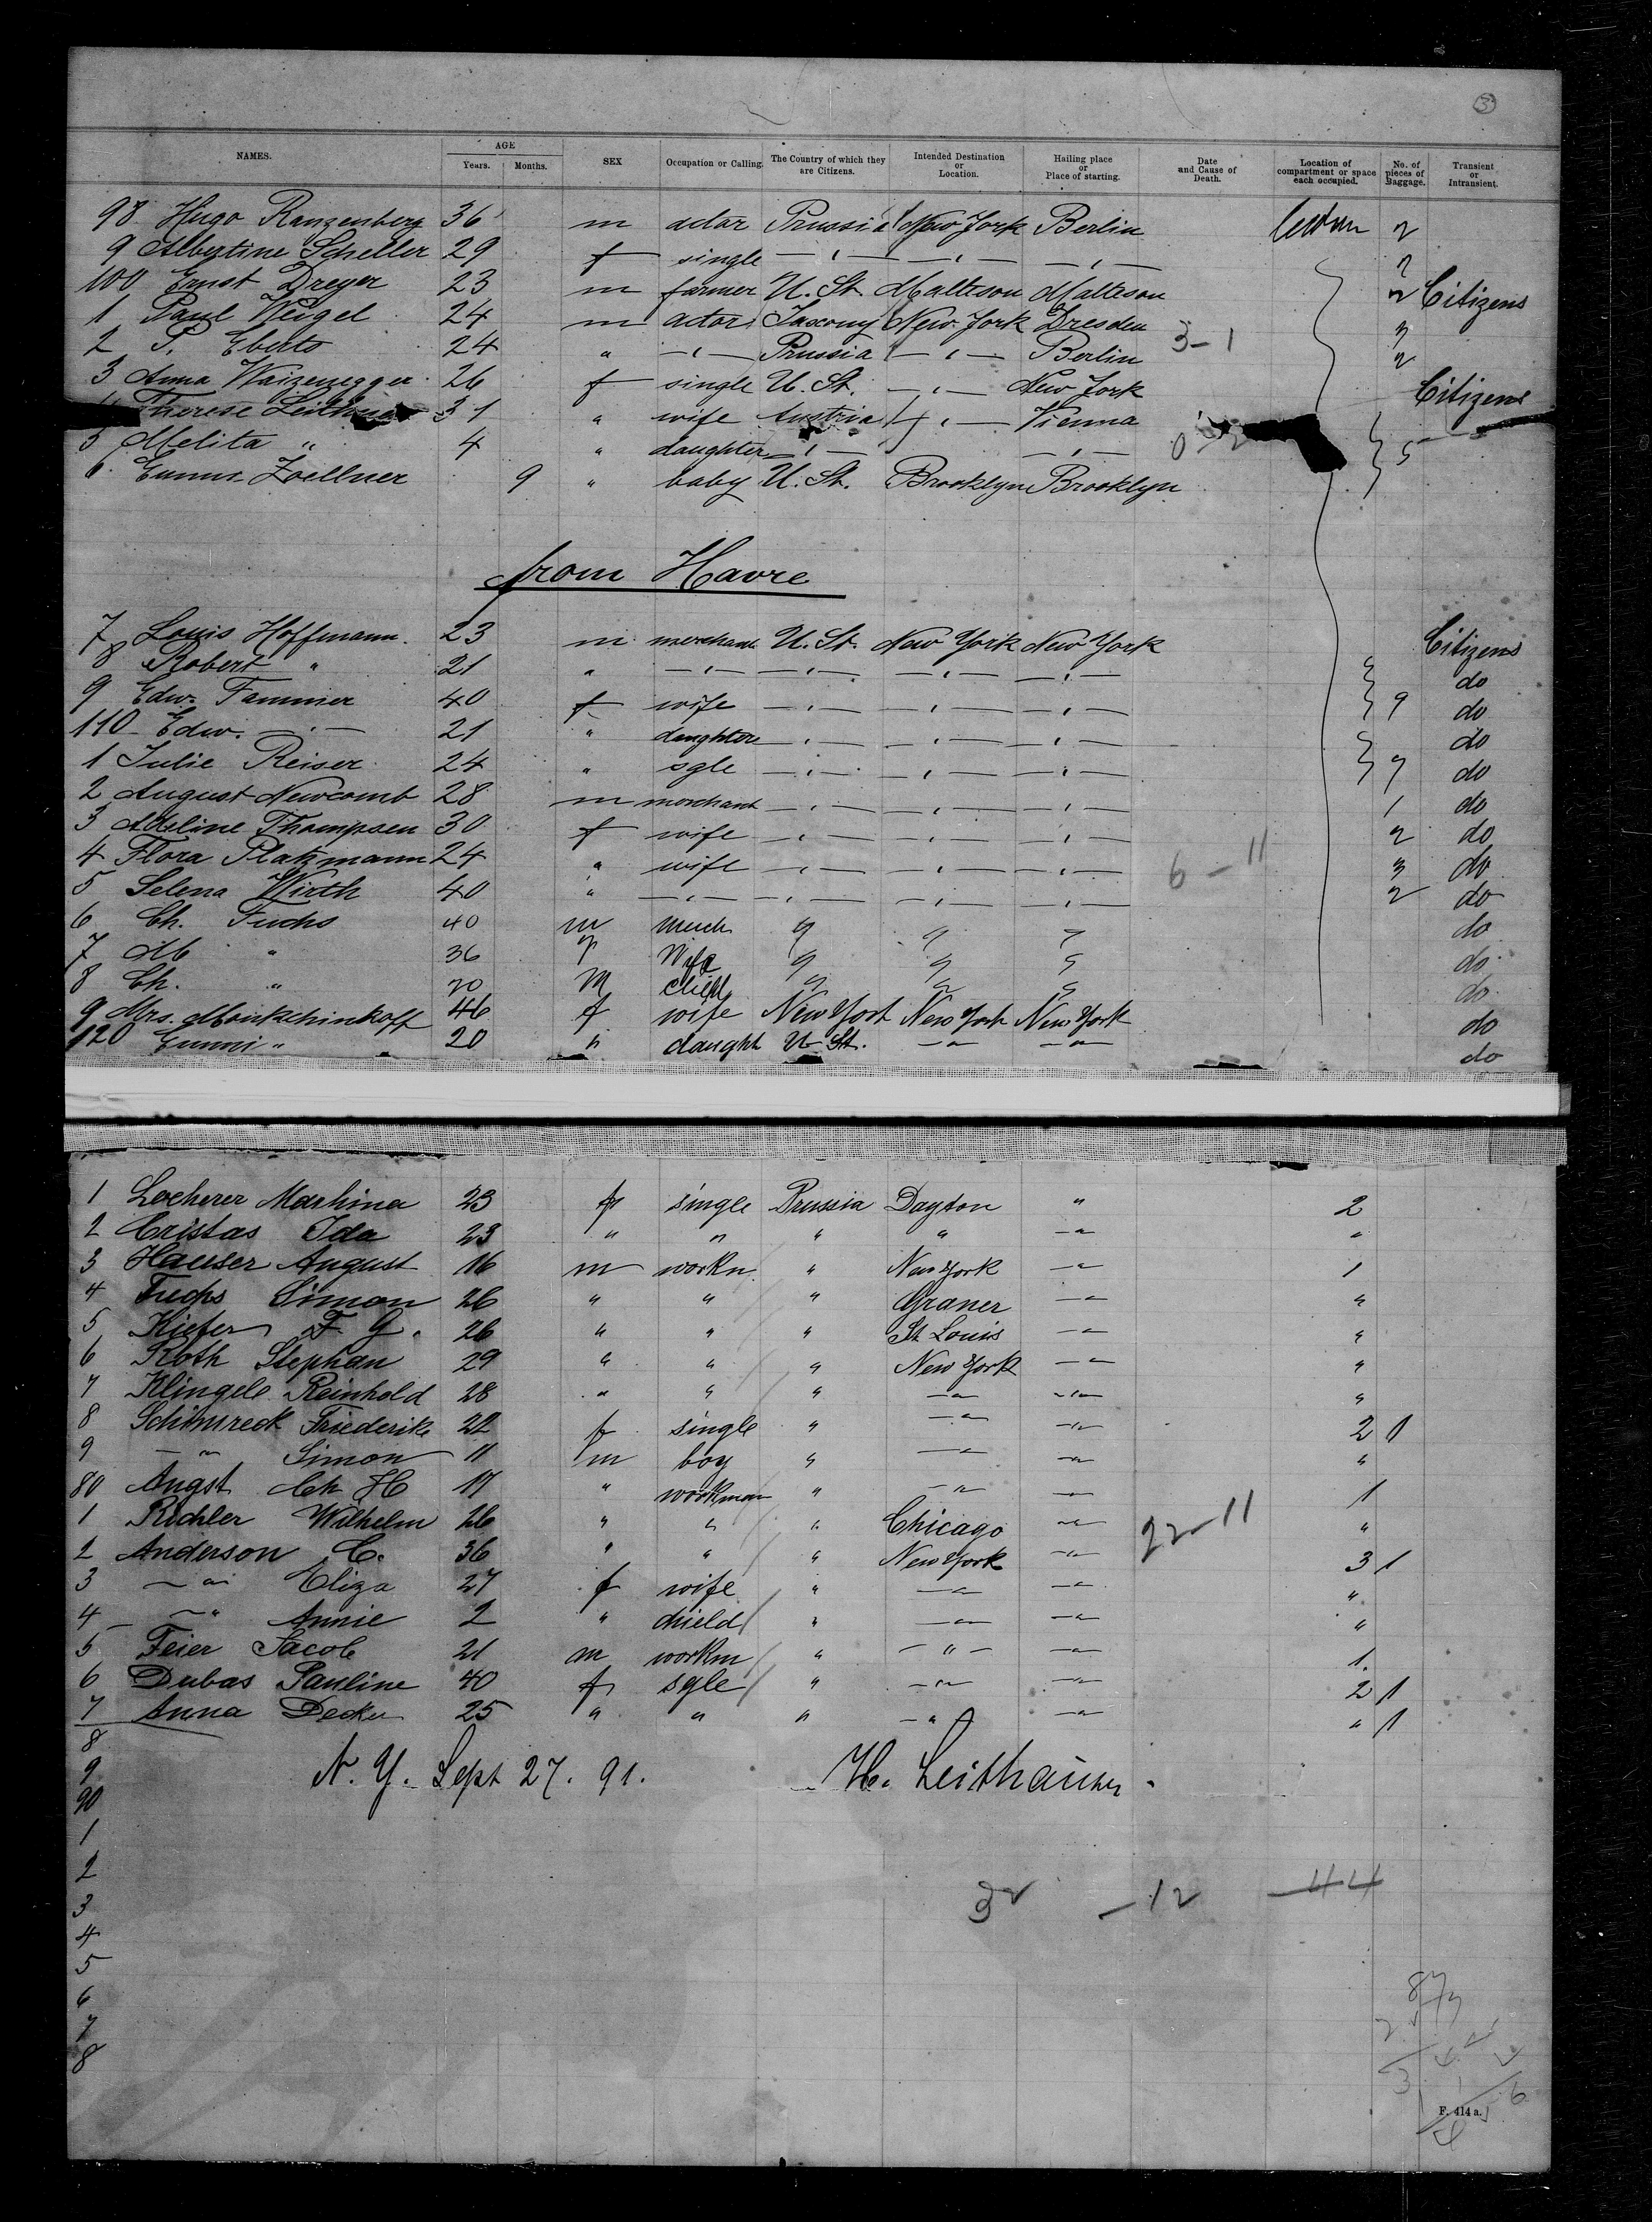 3
NAMES. AGE Years. Months. SEX Occupation or Calling. The Country of which they are Citizens. Intended Destination or Location. Hailing place or Place of starting. Date and Cause of Death. Location of compartment or space each occupied. No. of pieces of Baggage. Transient or Intransient.
98 Hugo Ranzenberg 36 m actor Prussia New York Berlin 2
9 Albertine Scheller 29 f single — " — — " — — " — 2
100 Ernst Dreyer 23 m farmer U. St. Matteson Matteson 2 Citizens
1 Paul Weigel 24 m actor Saxony New York Dresden 3
2 P. Eberts 24 " — " — Prussia — " — Berlin 3-1 2
3 Anna Waizenegger 26 f single U. St. — " — New York Citizens
Therese 31 " wife Austria — " — Vienna
5 Melita " 4 " daughter — " — — " — 5
6 Zoellner 9 " baby U. St. Brooklyn Brooklyn
from Havre
7 Louis Hoffmann. 23 m merchant U. St. New York New York Citizens
8 Robert " 21 " — " — — " — — " — — " — do
9 Edw. Fammer 40 f wife — " — — " — — " — 9 do
110 Edw. — " — 21 " daughter — " — — " — — " — do
1 Julie Reiser 24 " sgle — " — — " — — " — 7 do
2 August Newcomb 28 m merchant — " — — " — — " — 1 do
3 Adeline Thompsen 30 f wife — " — — " — — " — 2 do
4 Flora Platzmann 24 " wife — " — — " — — " — 6-11 3 do
5 Selena Wirth 40 " — " — — " — — " — — " — 2 do
6 Ch. Fuchs 40 m merch " " " do
7 M " 36 f Wife " " " do
8 Ch. " 20 M child " " " do
9 Mrs. 46 f wife New York New York New York do
120 Emmi " 20 " daught U. St. — " — — " — do
1 Locherer Mashina 23 f single Prussia Dayton " 2
2 Cristas Ida 23 " " " " — " — "
3 Hauser August 16 m workn " New York — " — 1
4 Fuchs Simon 26 " " " Graner — " — "
5 Kiefer F. G. 26 " " " St Louis — " — "
6 Roth Stephan 29 " " " New York — " — "
7 Klingele Reinhold 28 " " " — " — — " — "
8 Schimreck Friederike 22 f single " — " — — " — 2 1
9 — " — Simon 11 m boy " — " — — " — "
80 Angst Ch H 17 " workman " — " — — " — 1
1 Richler Wilhelm 26 " " " Chicago — " — 22-11 "
2 Anderson C. 36 " " " New York — " — 3 1
3 — " — Eliza 27 f wife " — " — — " — "
4 — " — Annie 2 " chield " — " — — " — "
5 Feier Jacob 21 m workm " — " — — " — 1.
6 Dubas Pauline 40 f sgle " — " — — " — 2 1
7 Anna Decker 25 " " " — " — — " — " 1
8
N. Y. Sept 27. 91. H. Leithäuser.
9
90
1
2
3 32 — 12 — 44
4
5
6
7
8
F. 414 a.